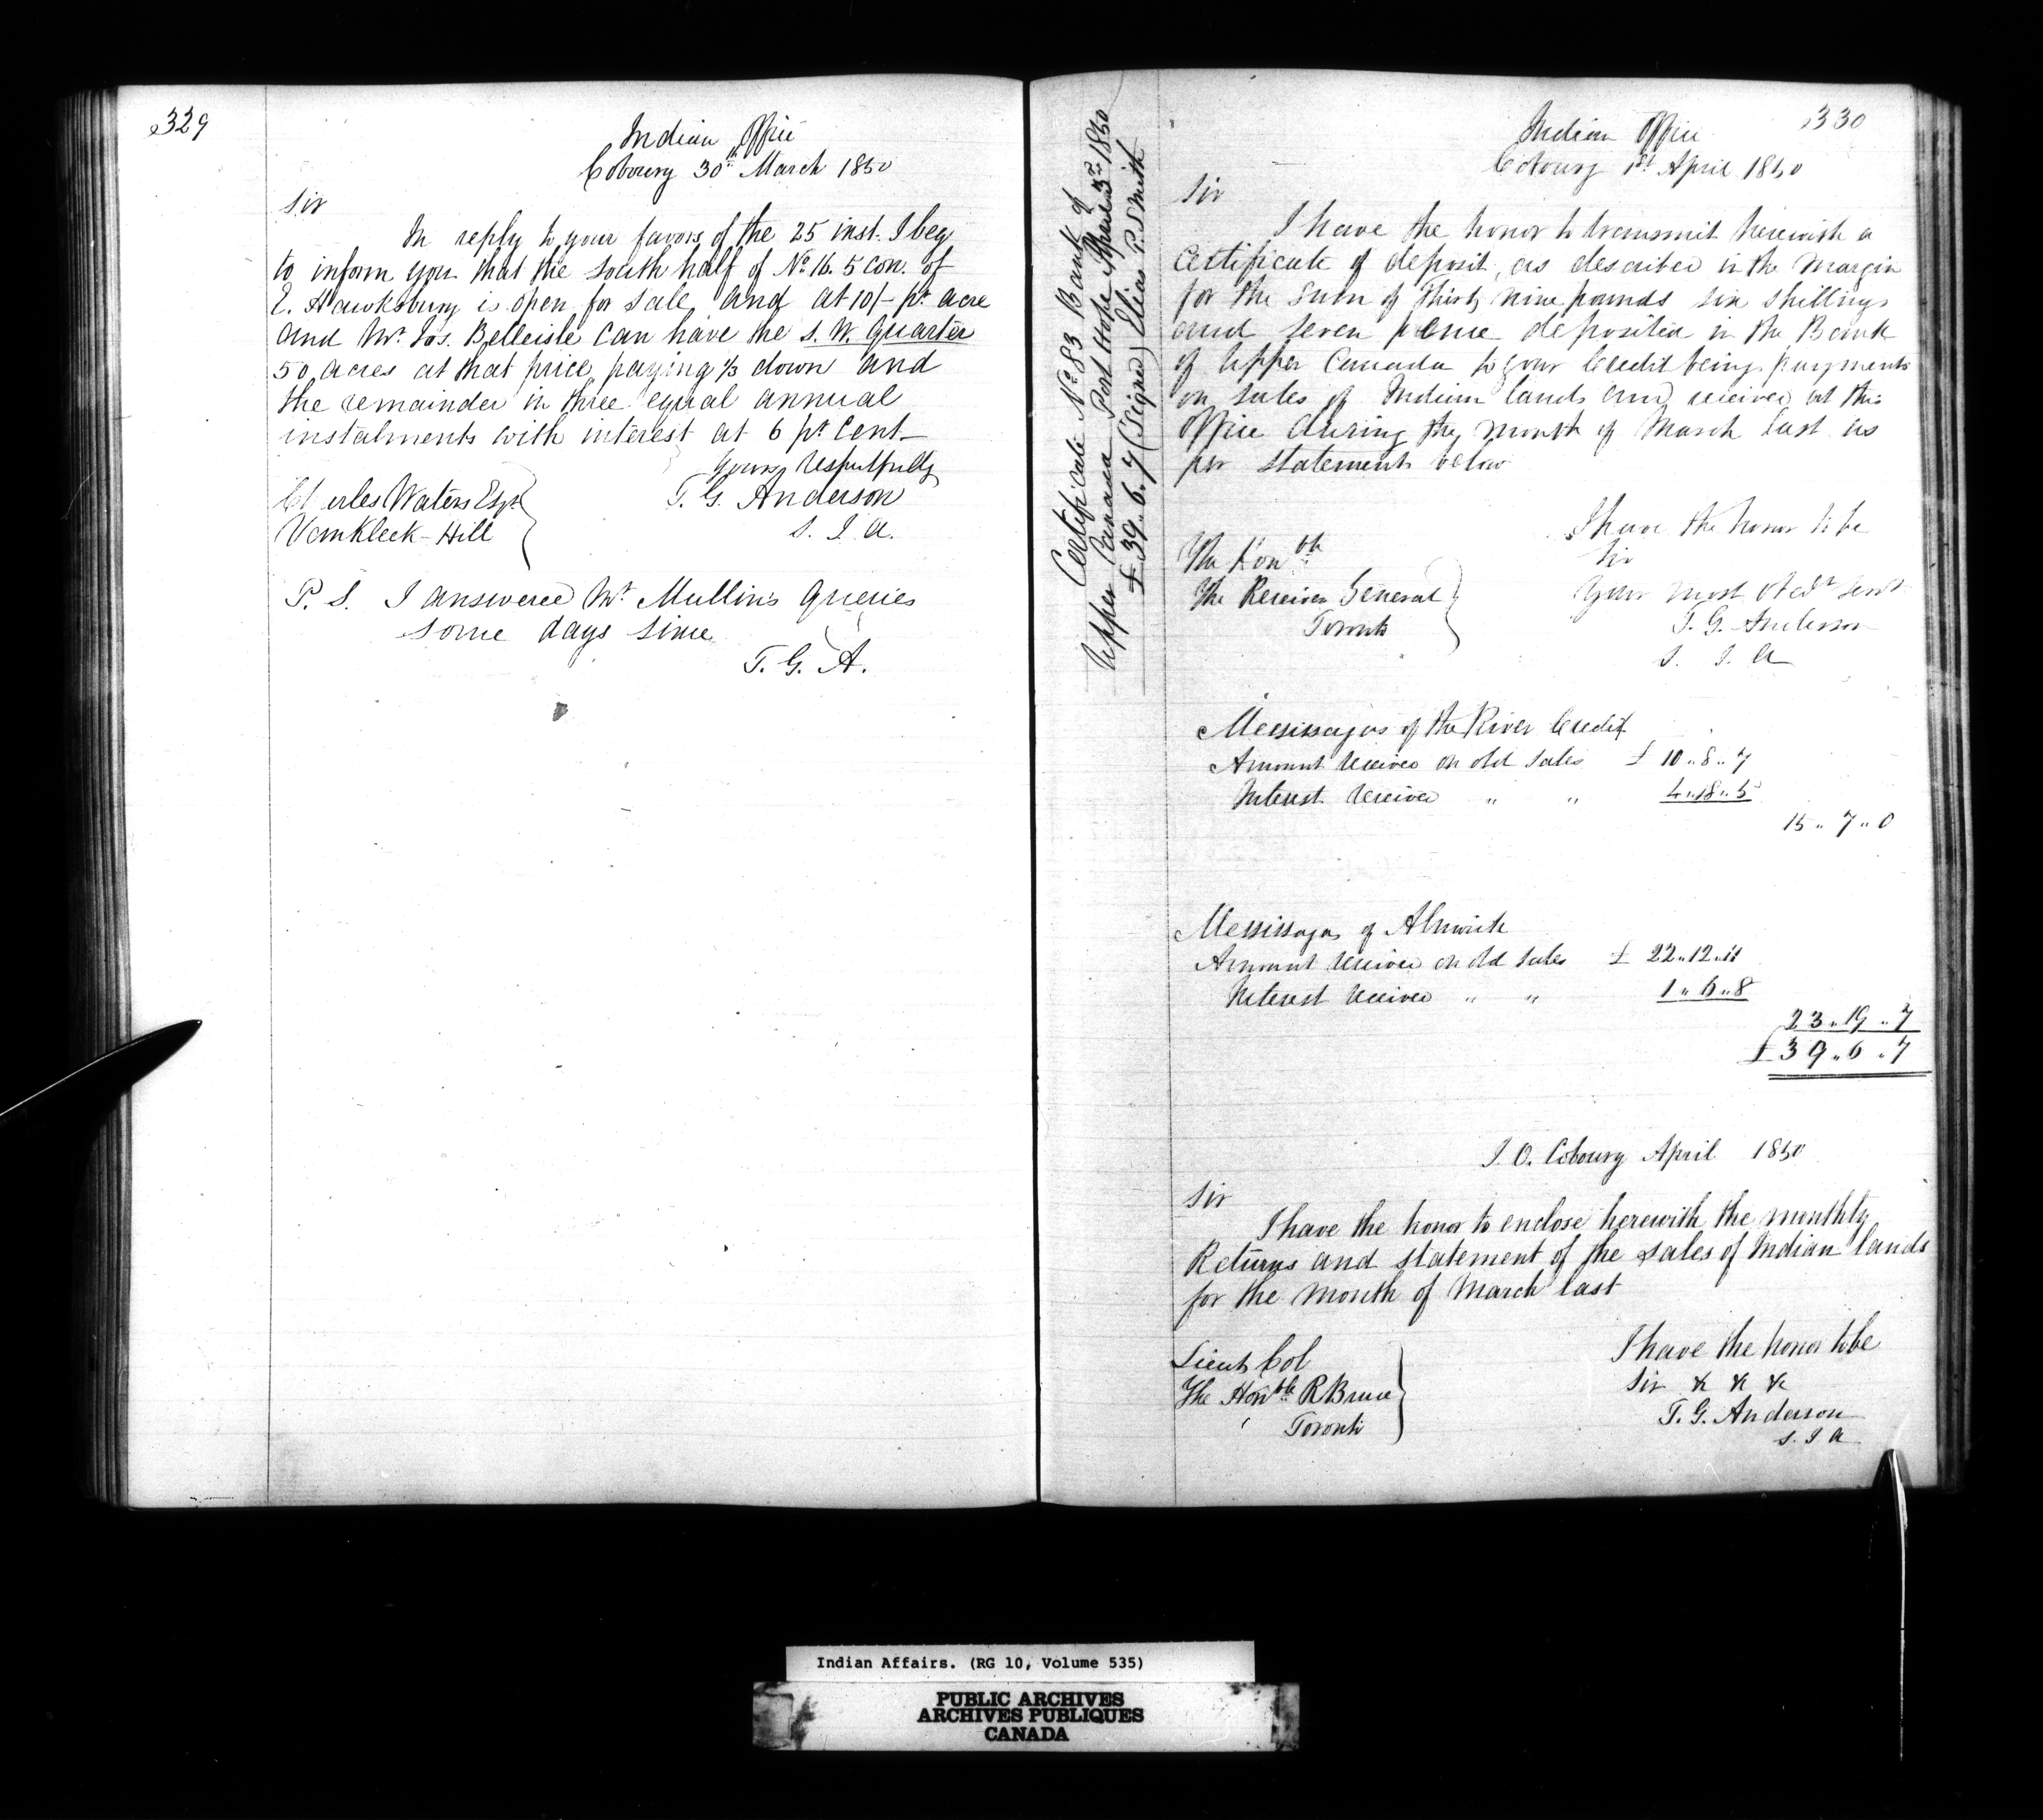 329
Indian Office
Cobourg 30th March 1850
Sir
In reply to your favors of the 25 inst. I beg
to inform you that the South half of No 16. 5 con. of
E. Hawksbury is open for sale and at 10/- pr acre
and Mr Jos. Belleisle can have the S. W. Quarter
50 acres at that price paying 1/3 down and
the remainder in three equal annual
instalments with interest at 6 pr Cent_
Yours respectfully
T. G. Anderson
S. I. A.
Charles Waters Esqr
Vankleek-Hill
P. S. I answered Mr Mullins Queries
some days since
T. G. A.
330
Indian Office
Cobourg 1st April 1850
Sir
I have the honor to transmit herewith a
Certificate of deposit, as described in the Margin
for the sum of thirty nine pounds six shillings
and seven pence deposited in the Bank
of Upper Canada to your Credit being payments
on sales of Indian lands and received at this
Office during the month of March last as
per statement below
Certificate No 83 Bank of
Upper Canada Port Hope April 3rd 1850
£39.6.7 (Signed) Elias P. Smith
I have the honor to be
Sir
Your most Obedt Servt
T. G. Anderson
S. I. A
The Honble
The Receiver General
Toronto
Messissagas of the River Credit
Amount received on old sales £ 10..8..7
Interest received " " 4..18..5
15..7..0
Messissagas of Alnwick
Amount received on old sales £ 22..12..11
Interest received " " 1..6..8
23..19..7
£39..6..7
I. O. Cobourg April 1850
Sir
I have the honor to enclose herewith the monthly
Returns and statement of the sales of Indian lands
for the month of March last
I have the honor to be
Sir &c &c &c
T. G. Anderson
S. I. A
Lieut Col
The Honble R Bruce
Toronto
Indian Affairs. (RG 10, Volume 535)
PUBLIC ARCHIVES
ARCHIVES PUBLIQUES
CANADA